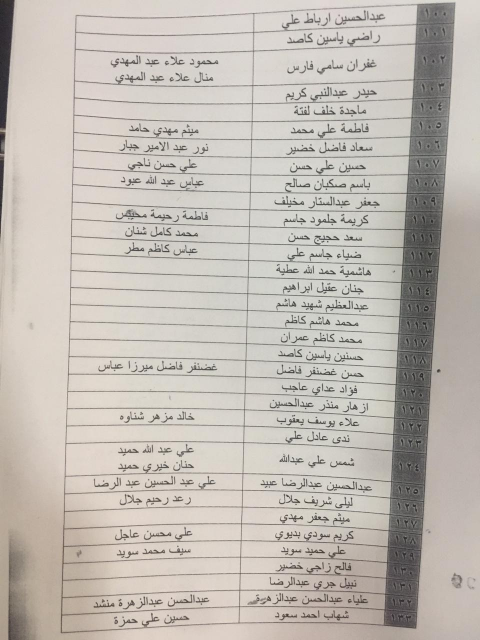 ١٠٠ عبدالحسين ارباط علي
١٠١ راضي ياسين كاصد
١٠٢ غفران سامي فارس محمود علاء عبد المهدي
منال علاء عبد المهدي
١٠٣ حيدر عبدالنبي كريم
١٠٤ ماجدة خلف لفتة
١٠٥ فاطمة علي محمد ميثم مهدي حامد
١٠٦ سعاد فاضل خضير نور عبد الامير جبار
١٠٧ حسين علي حسن علي حسن ناجي
١٠٨ باسم صكبان صالح عباس عبد الله عبود
١٠٩ جعفر عبدالستار مخيلف
١١٠ كريمة جلمود جاسم فاطمة رحيمة محيبس
١١١ سعد حجيج حسن محمد كامل شنان
١١٢ ضياء جاسم علي عباس كاظم مطر
١١٣ هاشمية حمد الله عطية
١١٤ جنان عقيل ابراهيم
١١٥ عبدالعظيم شهيد هاشم
١١٦ محمد هاشم كاظم
١١٧ محمد كاظم عمران
١١٨ حسنين ياسين كاصد
١١٩ حسن غضنفر فاضل غضنفر فاضل ميرزا عباس
١٢٠ فؤاد عداي عاجب
١٢١ ازهار منذر عبدالحسين
١٢٢ علاء يوسف يعقوب خالد مزهر شناوه
١٢٣ ندى عادل علي
١٢٤ شمس علي عبدالله علي عبد الله حميد
حنان خيري حميد
١٢٥ عبدالحسين عبدالرضا عبيد علي عبد الحسين عبد الرضا
١٢٦ ليلى شريف جلال رعد رحيم جلال
١٢٧ ميثم جعفر مهدي
١٢٨ كريم سودي بديوي علي محسن عاجل
١٢٩ علي حميد سويد سيف محمد سويد
١٣٠ فالح زاجي خضير
١٣١ نبيل جري عبدالرضا
١٣٢ علياء عبدالحسن عبدالزهرة عبدالحسن عبدالزهرة منشد
١٣٣ شهاب احمد سعود حسين علي حمزة